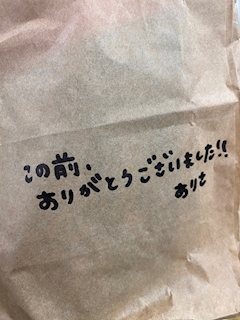 この前、
ありがとうございました!!
ありさ